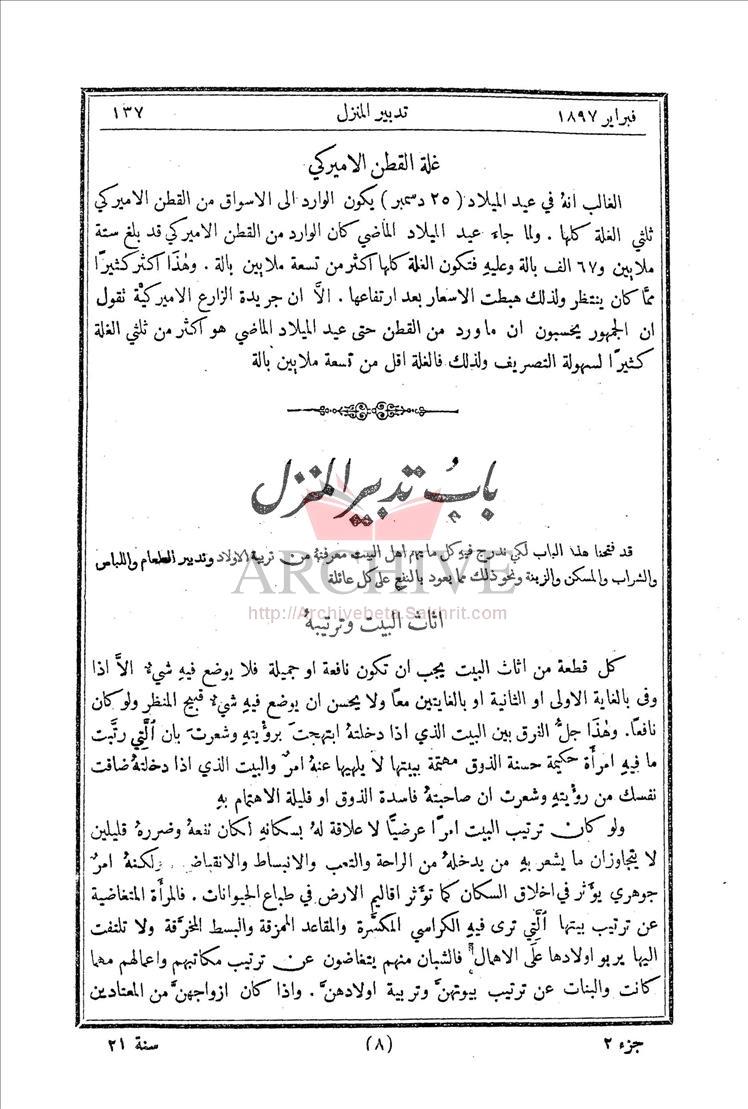 فبراير ١٨٩٧ تدبير المنزل ١٣٧
غلة القطن الاميركي
الغالب انهُ في عيد الميلاد ( ٢٥ دسمبر ) يكون الوارد الى الاسواق من القطن الاميركي
ثلثي الغلة كلها . ولما جاءَ عيد الميلاد الماضي كان الوارد من القطن الاميركي قد بلغ ستة
ملايين و٦٧ الف بالة وعليهِ فتكون الغلة كلها اكثر من تسعة ملايين بالة . وهٰذَا اكثر كثيرًا
ممَّا كان ينتظر ولذلك هبطت الاسعار بعد ارتفاعها . الاَّ ان جريدة الزارع الاميركيَّة تقول
ان الجمهور يحسبون ان ما ورد من القطن حتى عيد الميلاد الماضي هو اكثر من ثلثي الغلة
كثيرًا لسهولة التصريف ولذلك فالغلة اقل من تسعة ملايين بالة
بابُ تدبير المنزل
قد فتحنا هذا الباب لكي ندرج فيهِ كل ما يهم اهل البيت معرفتهُ من تربية الاولاد وتدبير الطعام واللباس
والشراب والمسكن والزينة ونحو ذلك مما يعود بالنفع على كل عائلة
ARCHIVE
http://Archivebeta.Sakhrit.com
اثاث البيت وترتيبهُ
كل قطعة من اثاث البيت يجب ان تكون نافعة او جميلة فلا يوضع فيهِ شيءٌ الاَّ اذا
وفى بالغاية الاولى او الثانية او بالغايتين معًا ولا يحسن ان يوضع فيهِ شيءٌ قبيح المنظر ولو كان
نافعًا. وهٰذَا جلُّ الفرق بين البيت الذي اذا دخلتهُ ابتهجتَ برؤيتهِ وشعرتَ بان الَّتي رتَّبت
ما فيهِ امرأَة حكيمة حسنة الذوق مهتمة ببيتها لا يلهيها عنهُ امرٌ والبيت الذي اذا دخلتهُ ضاقت
نفسك من رؤيتهِ وشعرت ان صاحبتهُ فاسدة الذوق او قليلة الاهتمام بهِ
ولو كان ترتيب البيت امرًا عرضيًّا لا علاقة لهُ بسكانهِ لكان نفعهُ وضررهُ قليلين
لا يتجاوزان ما يشعر بهِ من يدخلهُ من الراحة والتعب والانبساط والانقباض . ولكنهُ امرٌ
جوهري يؤثر في اخلاق السكان كما تؤثر اقاليم الارض في طباع الحيوانات . فالمرأَة المتغاضية
عن ترتيب بيتها الَّتي ترى فيهِ الكراسي المكسَّرة والمقاعد الممزقة والبسط المخرَّقة ولا تلتفت
اليها يربو اولادها عَلَى الاهمال فالشبان منهم يتغاضون عن ترتيب مكاتبهم واعمالهم مهما
كانت والبنات عن ترتيب بيوتهنَّ وتربية اولادهنَّ . واذا كان ازواجهنَّ من المعتادين
جزء ٢ (٨) سنة ٢١